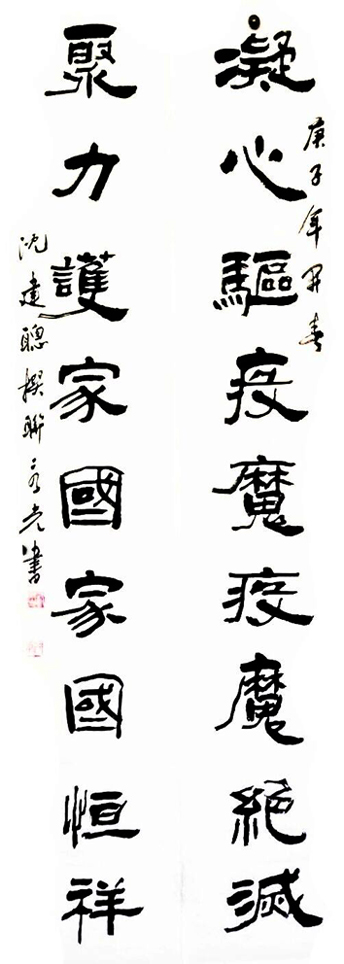 凝心驅疫魔疫魔絶滅
庚子年開春
聚力護家國家國恒祥
沈建聰撰聯
書